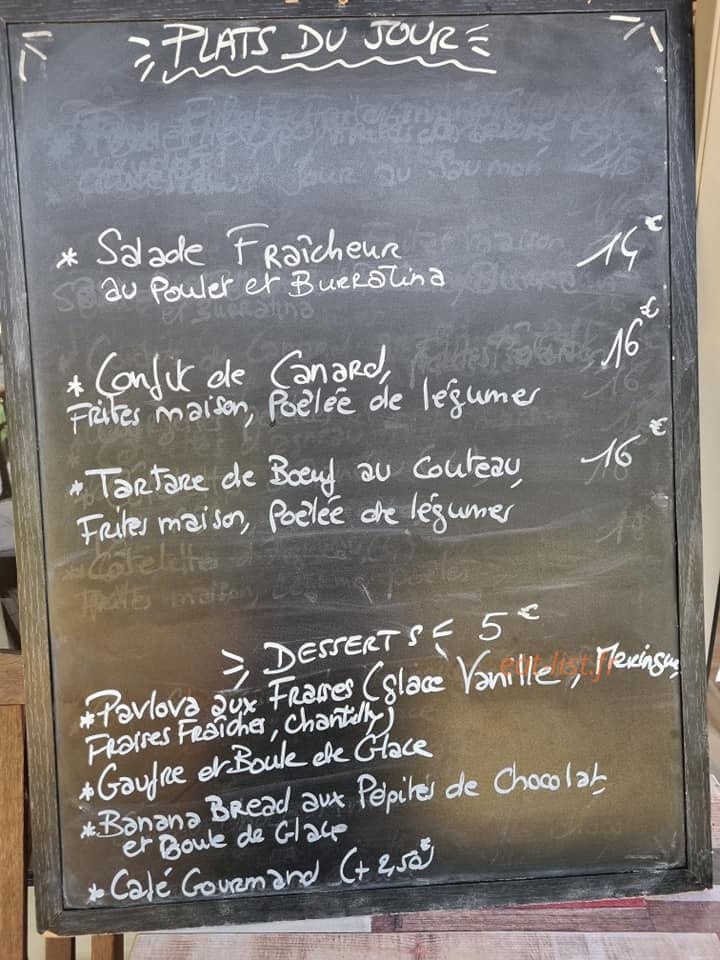 PLATS DU JOUR
* Salade Fraîcheur 14€
au Poulet et Burratina
* Confit de Canard, 16€
Frites maison, Poêlée de légumes
* Tartare de Bœuf au Couteau, 16€
Frites maison, Poêlée de légumes
DESSERTS 5€
eat-list.fr
* Pavlova aux Fraises (glace Vanille, Meringue,
Fraises Fraîches, Chantilly)
* Gaufre et Boule de Glace
* Banana Bread aux Pépites de Chocolat
et Boule de Glace
* Café Gourmand (+ 2,50€)